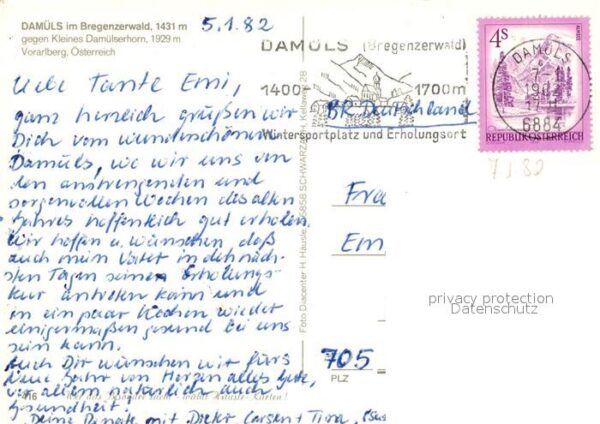 DAMÜLS im Bregenzerwald, 1431 m
gegen Kleines Damülserhorn, 1929 m
Vorarlberg, Österreich
5.1.82
Liebe Tante Emi,
ganz herzlich grüßen wir
Dich vom wunderschönen
Damüls, wo wir uns von
den anstrengenden und
sorgenvollen Wochen des alten
Jahres hoffentlich gut erholen.
Wir hoffen u. wünschen, daß
auch mein Vater in den näch-
sten Tagen seine Erholungs-
kur antreten kann und
in ein paar Wochen wieder
einigermaßen gesund bei uns
sein kann.
Auch Dir wünschen wir fürs
neue Jahr von Herzen alles Gute,
vor allem natürlich auch
Gesundheit.
Deine Renate mit Dieter, Carsten + Tina
416
Foto Diacenter H. Häusle, 6858 SCHWARZACH, Kellaweg 28
DAMÜLS (Bregenzerwald)
1400 1700m
Wintersportplatz und Erholungsort
BR Deutschland
4S
REPUBLIK ÖSTERREICH
DAMÜLS
6884
7 1 82
Fra
Em
705
PLZ
privacy protection
Datenschutz